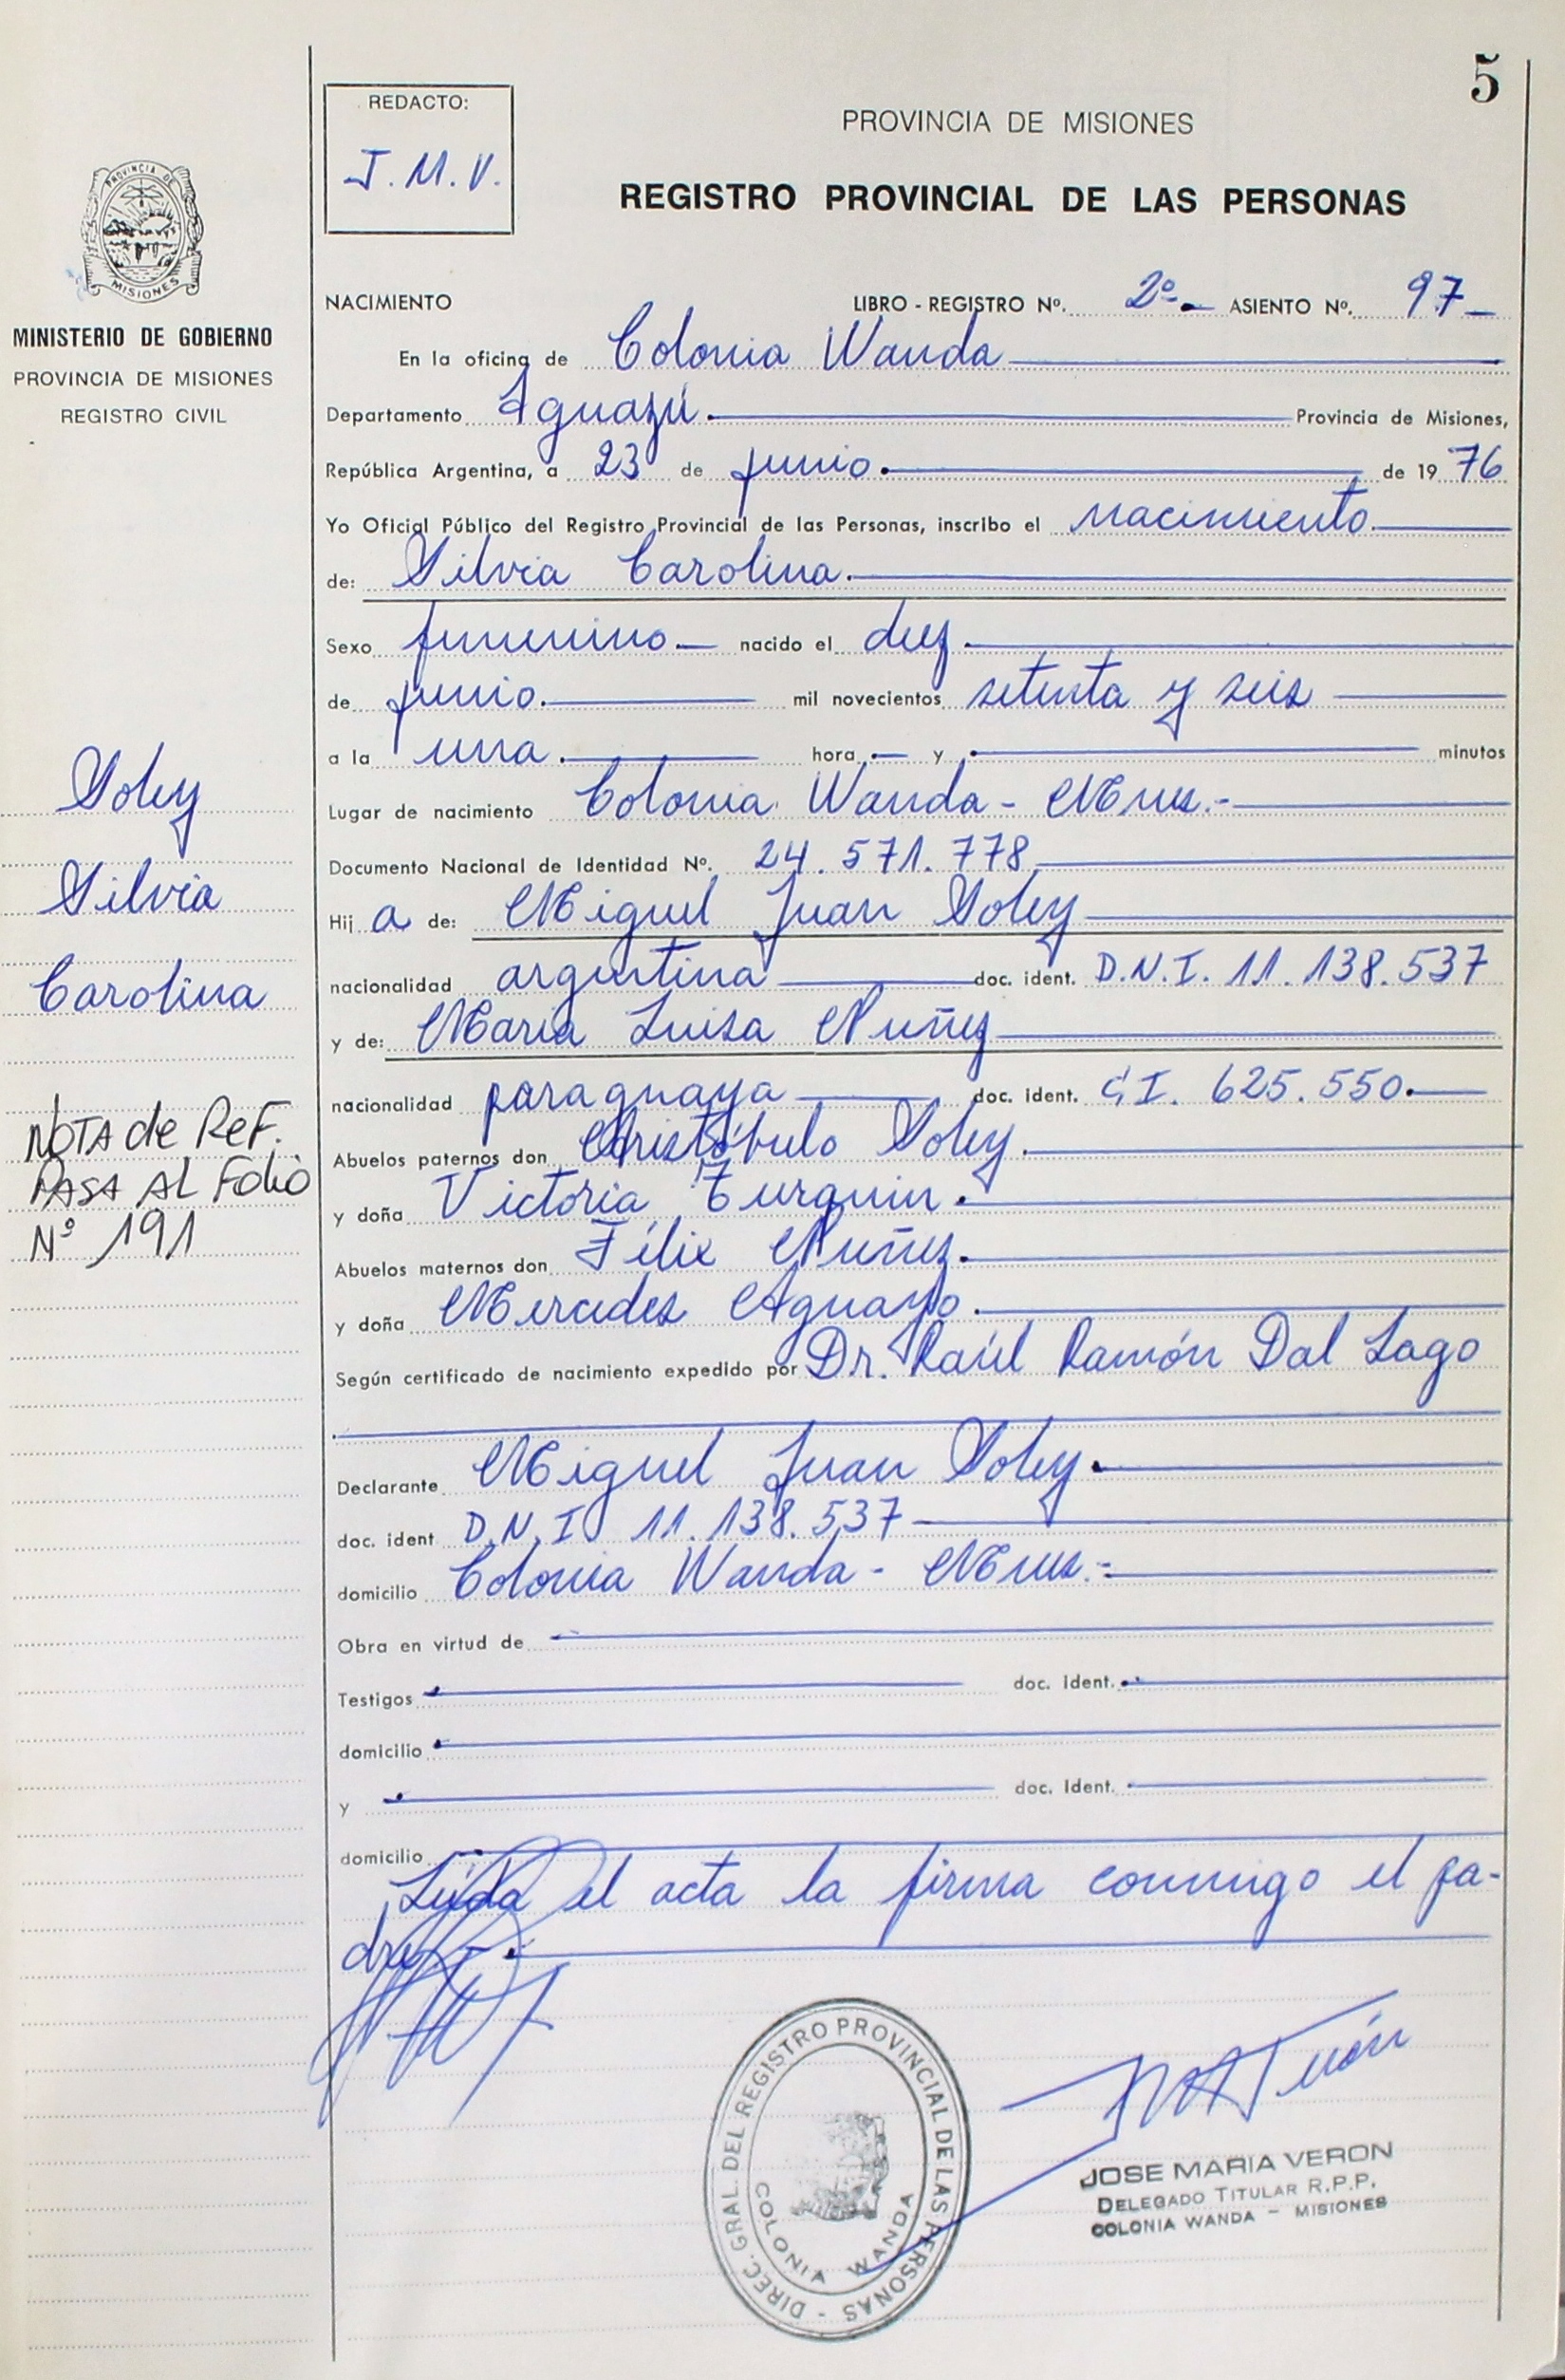 5
REDACTO:
J.M.V.
PROVINCIA DE MISIONES
REGISTRO PROVINCIAL DE LAS PERSONAS
PROVINCIA DE
MISIONES
MINISTERIO DE GOBIERNO
PROVINCIA DE MISIONES
REGISTRO CIVIL
NACIMIENTO LIBRO - REGISTRO Nº. 2º - ASIENTO Nº. 97 -
En la oficina de Colonia Wanda
Departamento Iguazú. Provincia de Misiones,
República Argentina, a 23 de junio. de 1976
Yo Oficial Público del Registro Provincial de las Personas, inscribo el nacimiento.
de: Silvia Carolina.
Sexo femenino. nacido el diez.
de junio. mil novecientos setenta y seis
a la una. hora, y minutos
Lugar de nacimiento Colonia Wanda - Mnes.-
Documento Nacional de Identidad Nº. 24.571.778
Hija de: Miguel Juan Soley
nacionalidad argentina doc. ident. D.N.I. 11.138.537
y de: Maria Luisa Nuñez
nacionalidad paraguaya doc. ident. C.I. 625.550.
Abuelos paternos don Christóbulo Soley.
y doña Victoria Turquin.
Abuelos maternos don Félix Nuñez.
y doña Mercedes Aguayo.
Según certificado de nacimiento expedido por Dr. Raúl Ramón Dal Lago
Declarante Miguel Juan Soley.
doc. ident D.N.I 11.138.537
domicilio Colonia Wanda - Mnes.-
Obra en virtud de
Testigos doc. ident.
domicilio
y doc. Ident.
domicilio
Leída el acta la firma conmigo el pa-
dre.-
Soley
Silvia
Carolina
NOTA de ReF.
PASA AL Folio
Nº 191
DIREC. GRAL. DEL REGISTRO PROVINCIAL DE LAS PERSONAS -
COLONIA WANDA
JOSE MARIA VERON
DELEGADO TITULAR R.P.P.
COLONIA WANDA - MISIONES